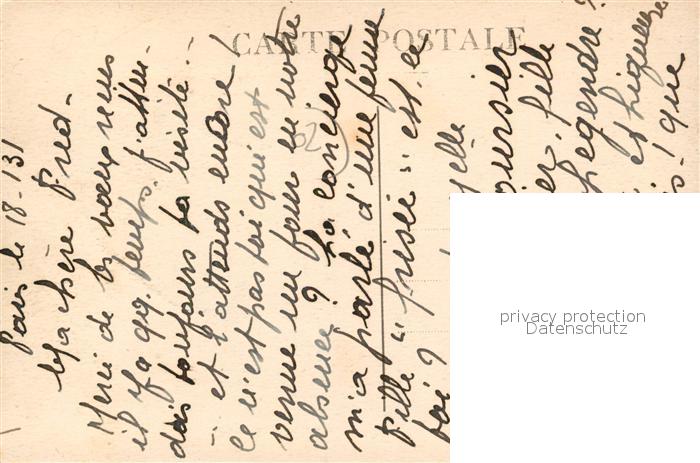 CARTE POSTALE
Paris le 18-1 31
Ma chère Pred.
Merci de tes voeux reçus
il y a qq. temps. J'atten-
dais toujours ta visite..
.. et l'attends encore!
Ce n'est pas toi qui est
venue un jour en notre
absence? La concierge
m'a parlé d'une jeune
fille "frisée" est-ce
toi?
elle
fille
Legendre?
et
que
privacy protection
Datenschutz